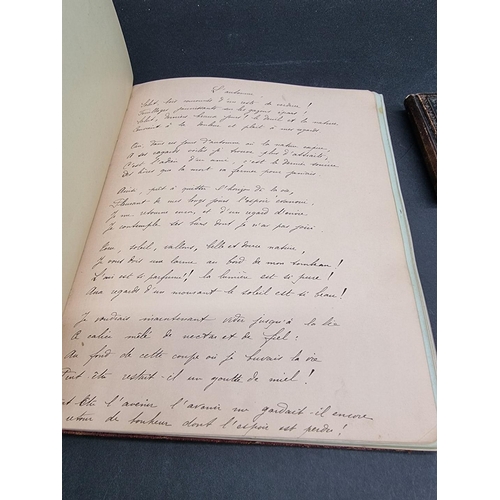 L'automne
Salut, bois couronnés d'un reste de verdure!
Feuillages jaunissants sur les gazons épars!
Salut, derniers beaux jours! le deuil de la nature
Convient à la douleur et plaît à mes regards
Oui, dans ces jours d'automne où la nature expire,
A ses regards voilés je trouve plus d'attraits;
C'est l'adieu d'un ami, c'est le dernier sourire
Des lèvres que la mort va fermer pour jamais
Ainsi, prêt à quitter l'horizon de la vie,
Pleurant de mes longs jours l'espoir évanoui
Je me retourne encore, et d'un regard d'envie
Je contemple ses biens dont je n'ai pas joui
Terre, soleil, vallons, belle et douce nature,
Je vous dois une larme au bord de mon tombeau!
L'air est si parfumé! la lumière est si pure!
Aux regards d'un mourant le soleil est si beau!
Je voudrais maintenant vider jusqu'à la lie
Ce calice mêlé de nectar et de fiel:
Au fond de cette coupe où je buvais la vie
Peut-être restait-il une goutte de miel!
L'avenir me gardait-il encore
retour de bonheur dont l'espoir est perdu!